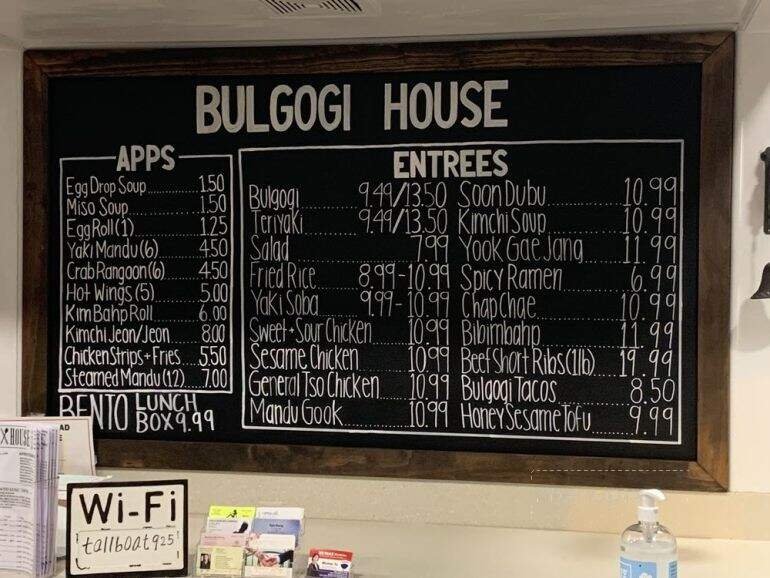 BULGOGI HOUSE
APPS
Egg Drop Soup 1.50
Miso Soup 1.50
Egg Roll (1) 1.25
Yaki Mandu (6) 4.50
Crab Rangoon (6) 4.50
Hot Wings (5) 5.00
Kim Bahp Roll 6.00
Kimchi Jeon/Jeon 8.00
Chicken Strips + Fries 5.50
Steamed Mandu (12) 7.00
BENTO LUNCH BOX 9.99
ENTREES
Bulgogi 9.49/13.50
Teriyaki 9.49/13.50
Salad 7.99
Fried Rice 8.99-10.99
Yaki Soba 9.99-10.99
Sweet + Sour Chicken 10.99
Sesame Chicken 10.99
General Tso Chicken 10.99
Mandu Gook 10.99
Soon Dubu 10.99
Kimchi Soup 10.99
Yook Gae Jang 11.99
Spicy Ramen 6.99
Chap Chae 10.99
Bibimbahp 11.99
Beef Short Ribs (1lb) 19.99
Bulgogi Tacos 8.50
Honey Sesame Tofu 9.99
HOUSE
Wi-Fi
tallboat925